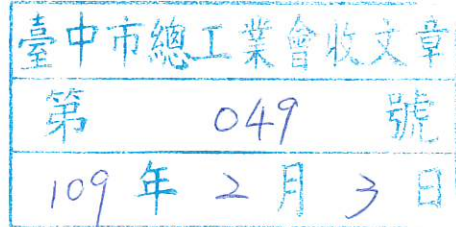 臺中市總工業會收文章
第 049 號
109 年 2 月 3 日